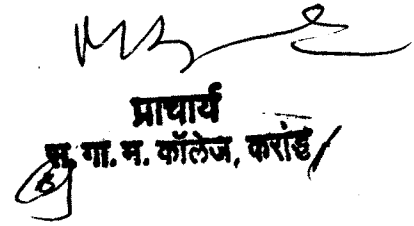 प्राचार्य
स. गा. म. कॉलेज, कराड